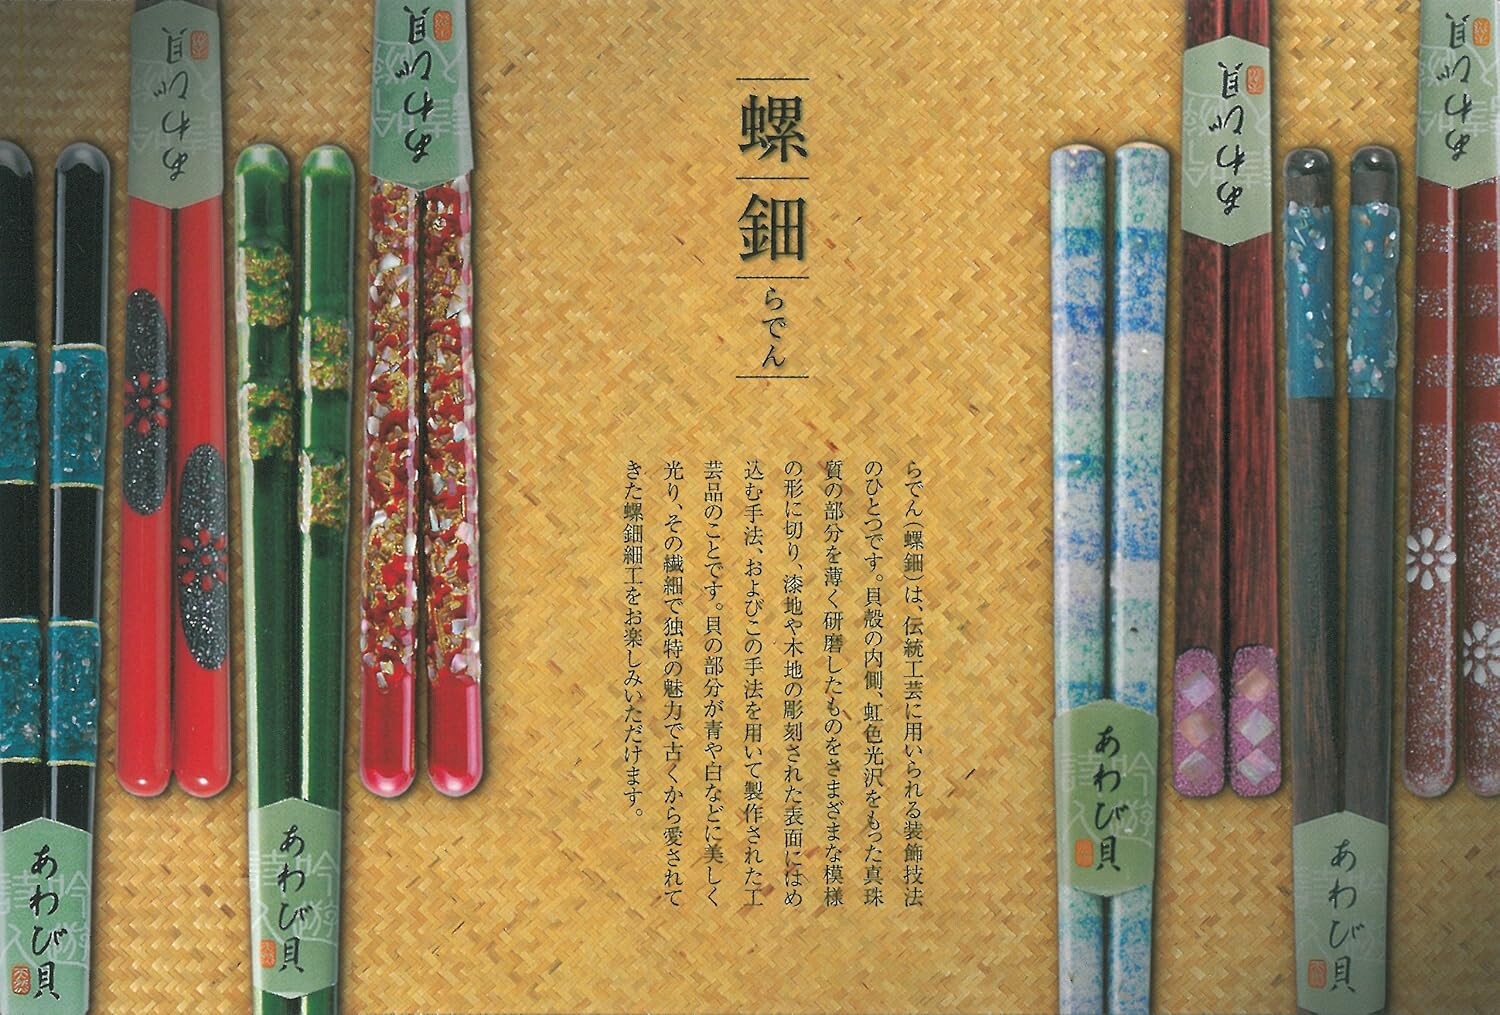 螺鈿
らでん
らでん（螺鈿）は、伝統工芸に用いられる装飾技法
のひとつです。貝殻の内側、虹色光沢をもった真珠
質の部分を薄く研磨したものをさまざまな模様
の形に切り、漆地や木地の彫刻された表面にはめ
込む手法、およびこの手法を用いて製作された工
芸品のことです。貝の部分が青や白などに美しく
光り、その繊細で独特の魅力で古くから愛されて
きた螺鈿細工をお楽しみいただけます。
あわび貝
あわび貝
あわび貝
あわび貝
あわび貝
あわび貝
あわび貝
あわび貝